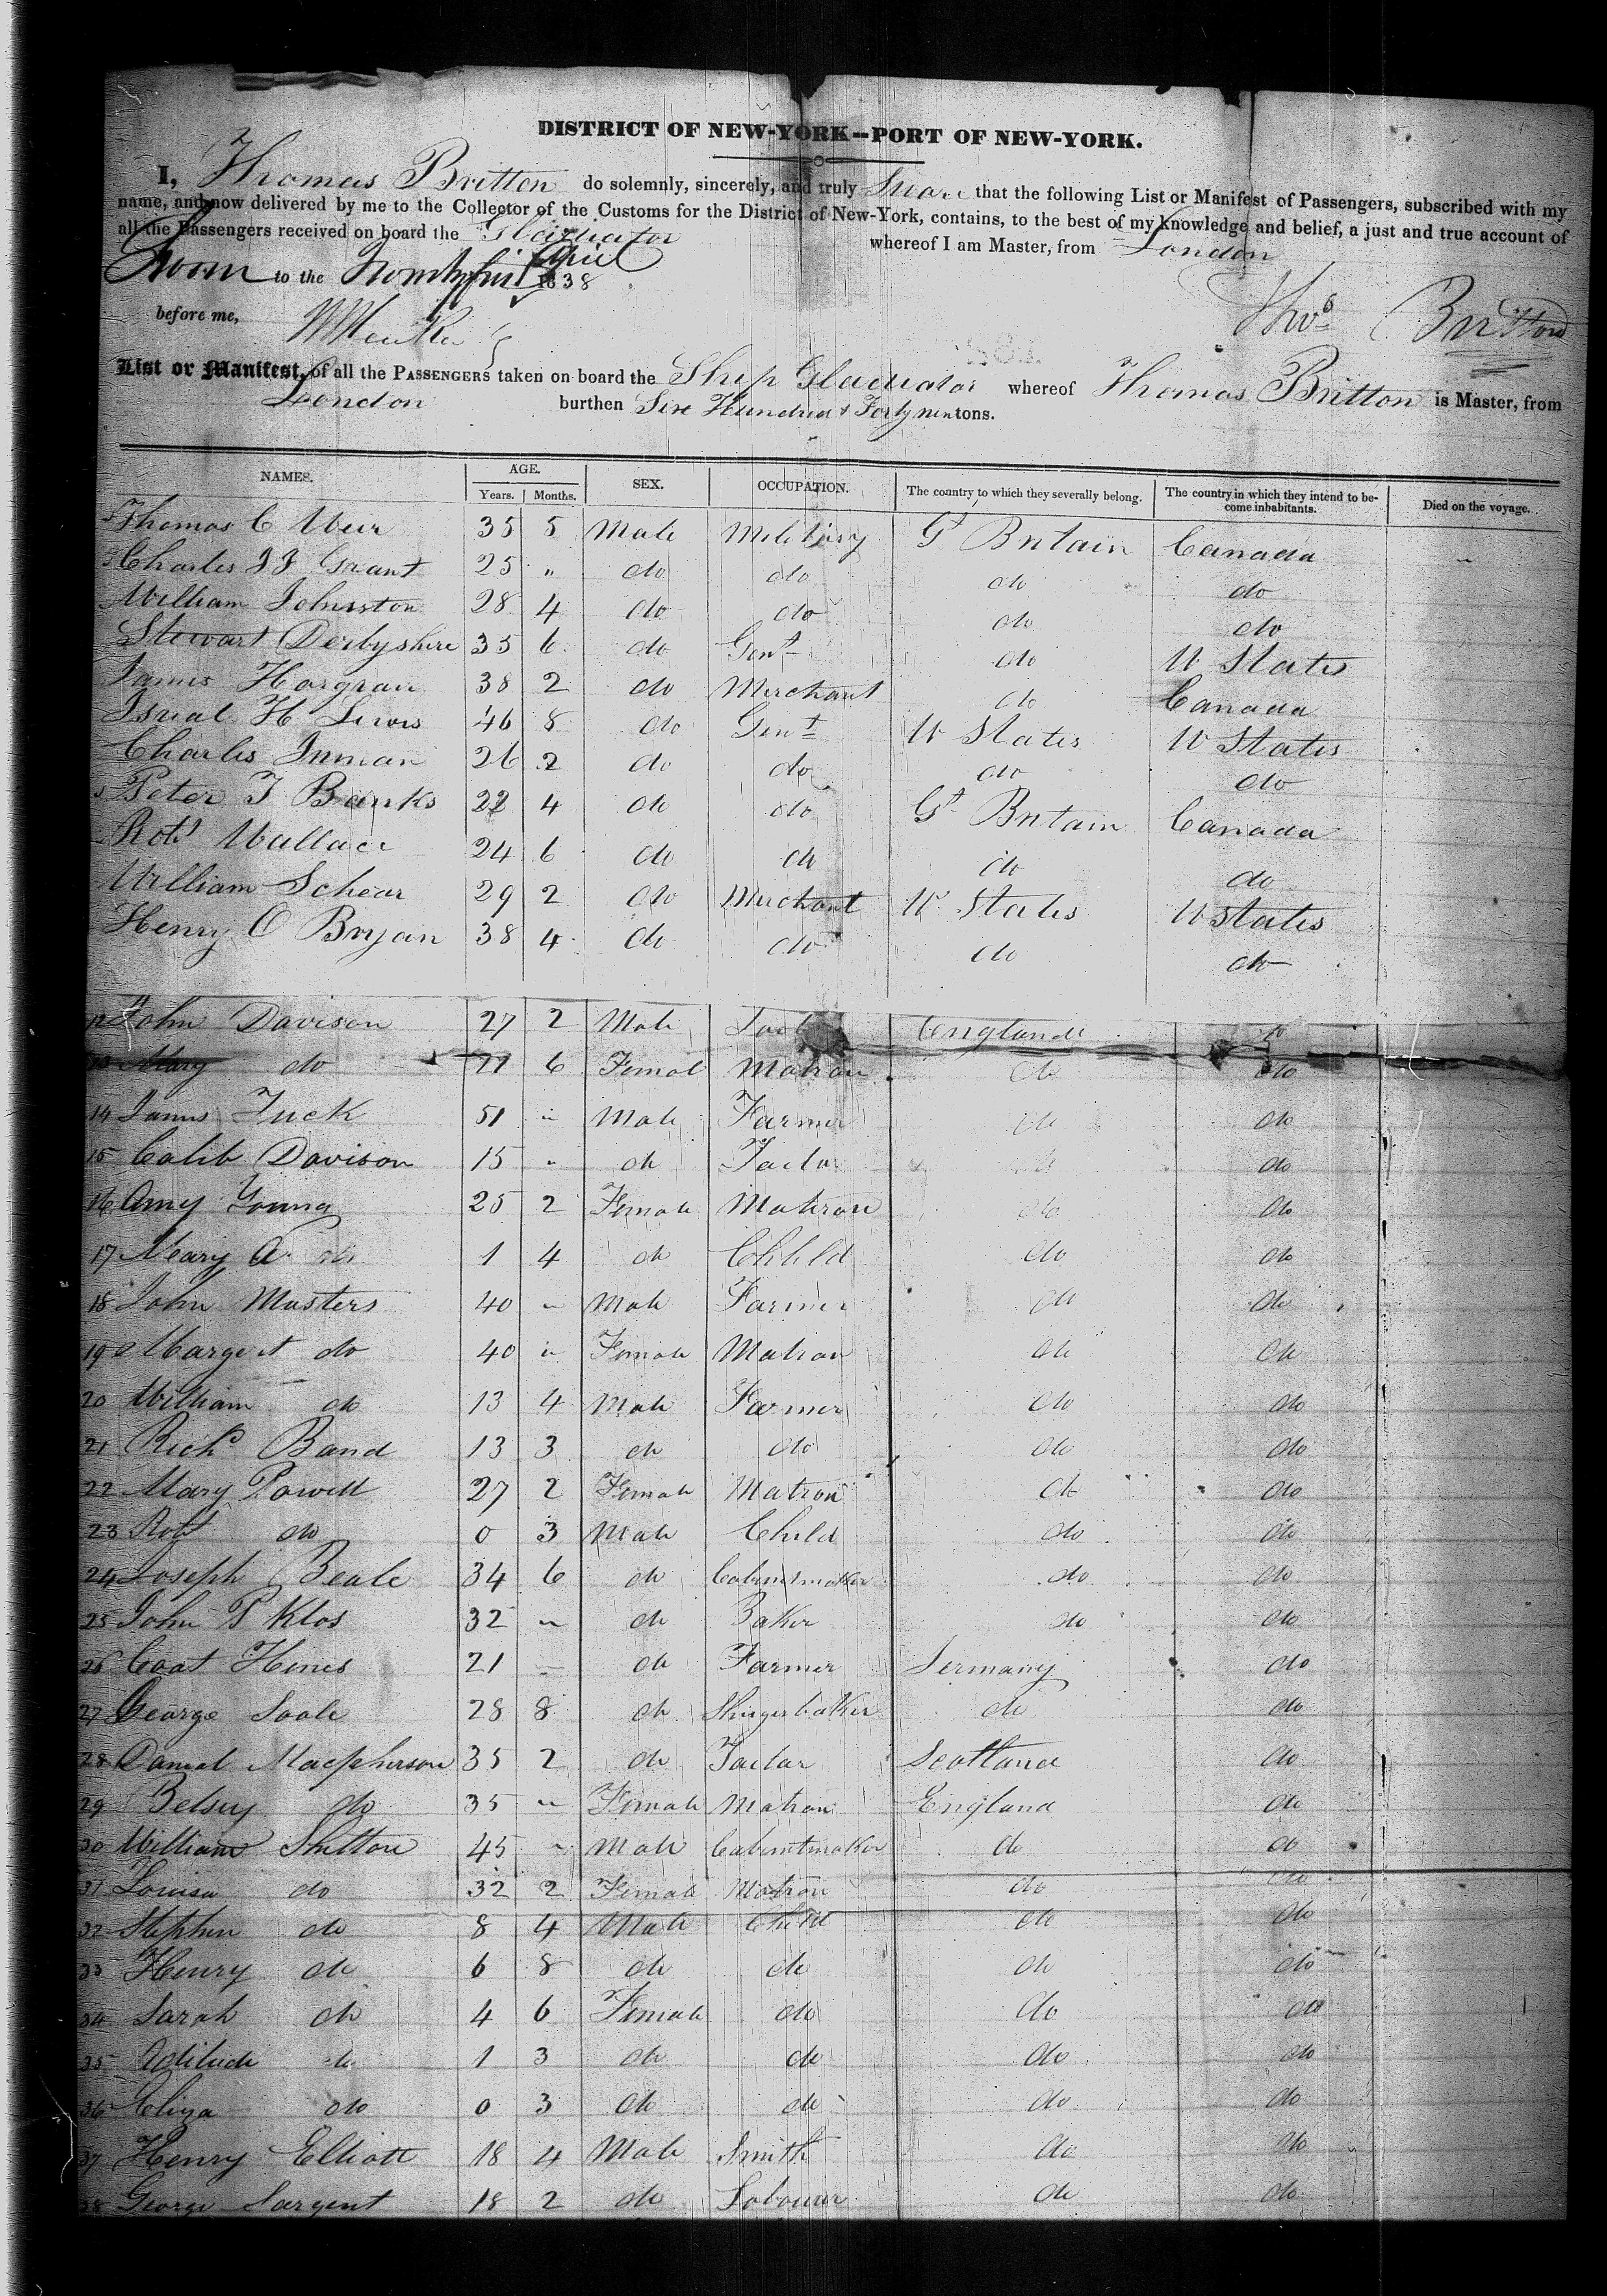 DISTRICT OF NEW-YORK--PORT OF NEW-YORK.
I, Thomas Britton do solemnly, sincerely, and truly Swear that the following List or Manifest of Passengers, subscribed with my
name, and now delivered by me to the Collector of the Customs for the District of New-York, contains, to the best of my knowledge and belief, a just and true account of
all the Passengers received on board the Gladiator whereof I am Master, from London
Sworn to the Twenty first April 1838
Thos Britton
before me,
List or Manifest, of all the PASSENGERS taken on board the Ship Gladiator whereof Thomas Britton is Master, from
London burthen Six Hundred & Forty nine tons.
NAMES. AGE. SEX. OCCUPATION. The country to which they severally belong. The country in which they intend to be- Died on the voyage.
Years. Months. come inhabitants.
Thomas C Weir 35 5 Male Military Gt Britain Canada
Charles J J Grant 25 " do do do do
William Johnston 28 4 do do do do
Stewart Derbyshire 35 6 do Gent do U States
James Hargrave 38 2 do Merchant do Canada
Isreal H Lewis 46 8 do Gent U States U States
Charles Inman 26 2 do do do do
Peter J Banks 22 4 do do Gt Britain Canada
Robt Wallace 24 6 do do do do
William Schear 29 2 do Merchant U States U States
Henry O Bryan 38 4 do do do do
12 John Davison 27 2 Male England do
13 Mary do 27 6 Female Matron do do
14 James Tuck 51 " Male Farmer do do
15 Caleb Davison 15 " do Tailor do do
16 Amy Young 25 2 Female Matron do do
17 Mary A do 1 4 do Child do do
18 John Masters 40 " Male Farmer do do
19 Marget do 40 " Female Matron do do
20 William do 13 4 Male Farmer do do
21 Richd Band 13 3 do do do do
22 Mary Powell 27 2 Female Matron do do
23 Robt do 0 3 Male Child do do
24 Joseph Beale 34 6 do Cabinetmaker do do
25 John P Klos 32 " do Baker do do
26 Hines 21 — do Farmer Germany do
27 George Soale 28 8 do do do
28 Daniel Macpherson 35 2 do Tailor Scotland do
29 Betsey do 35 " Female Matron England do
30 William Shelton 45 " Male Cabinetmaker do do
31 Louisa do 32 2 Female Matron do do
32 Stephen do 8 4 Male Child do do
33 Henry do 6 8 do do do do
34 Sarah do 4 6 Female do do do
35 do 1 3 do do do do
36 Eliza do 0 3 do do do do
37 Henry Elliott 18 4 Male Smith do do
38 George Sargent 18 2 do Labourer do do